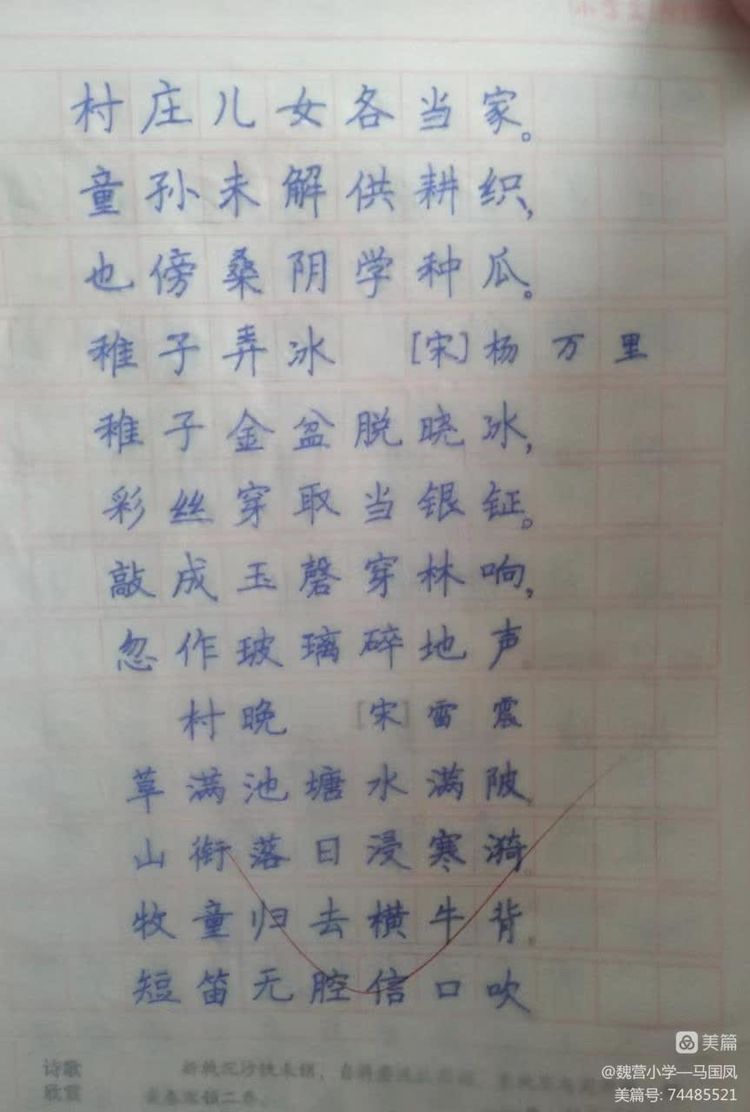 村庄儿女各当家。
童孙未解供耕织，
也傍桑阴学种瓜。
稚子弄冰 [宋]杨万里
稚子金盆脱晓冰，
彩丝穿取当银钲。
敲成玉磬穿林响，
忽作玻璃碎地声
村晚 [宋]雷震
草满池塘水满陂
山衔落日浸寒漪
牧童归去横牛背
短笛无腔信口吹
诗歌
欣赏
美篇
@魏营小学—马国凤
美篇号: 74485521